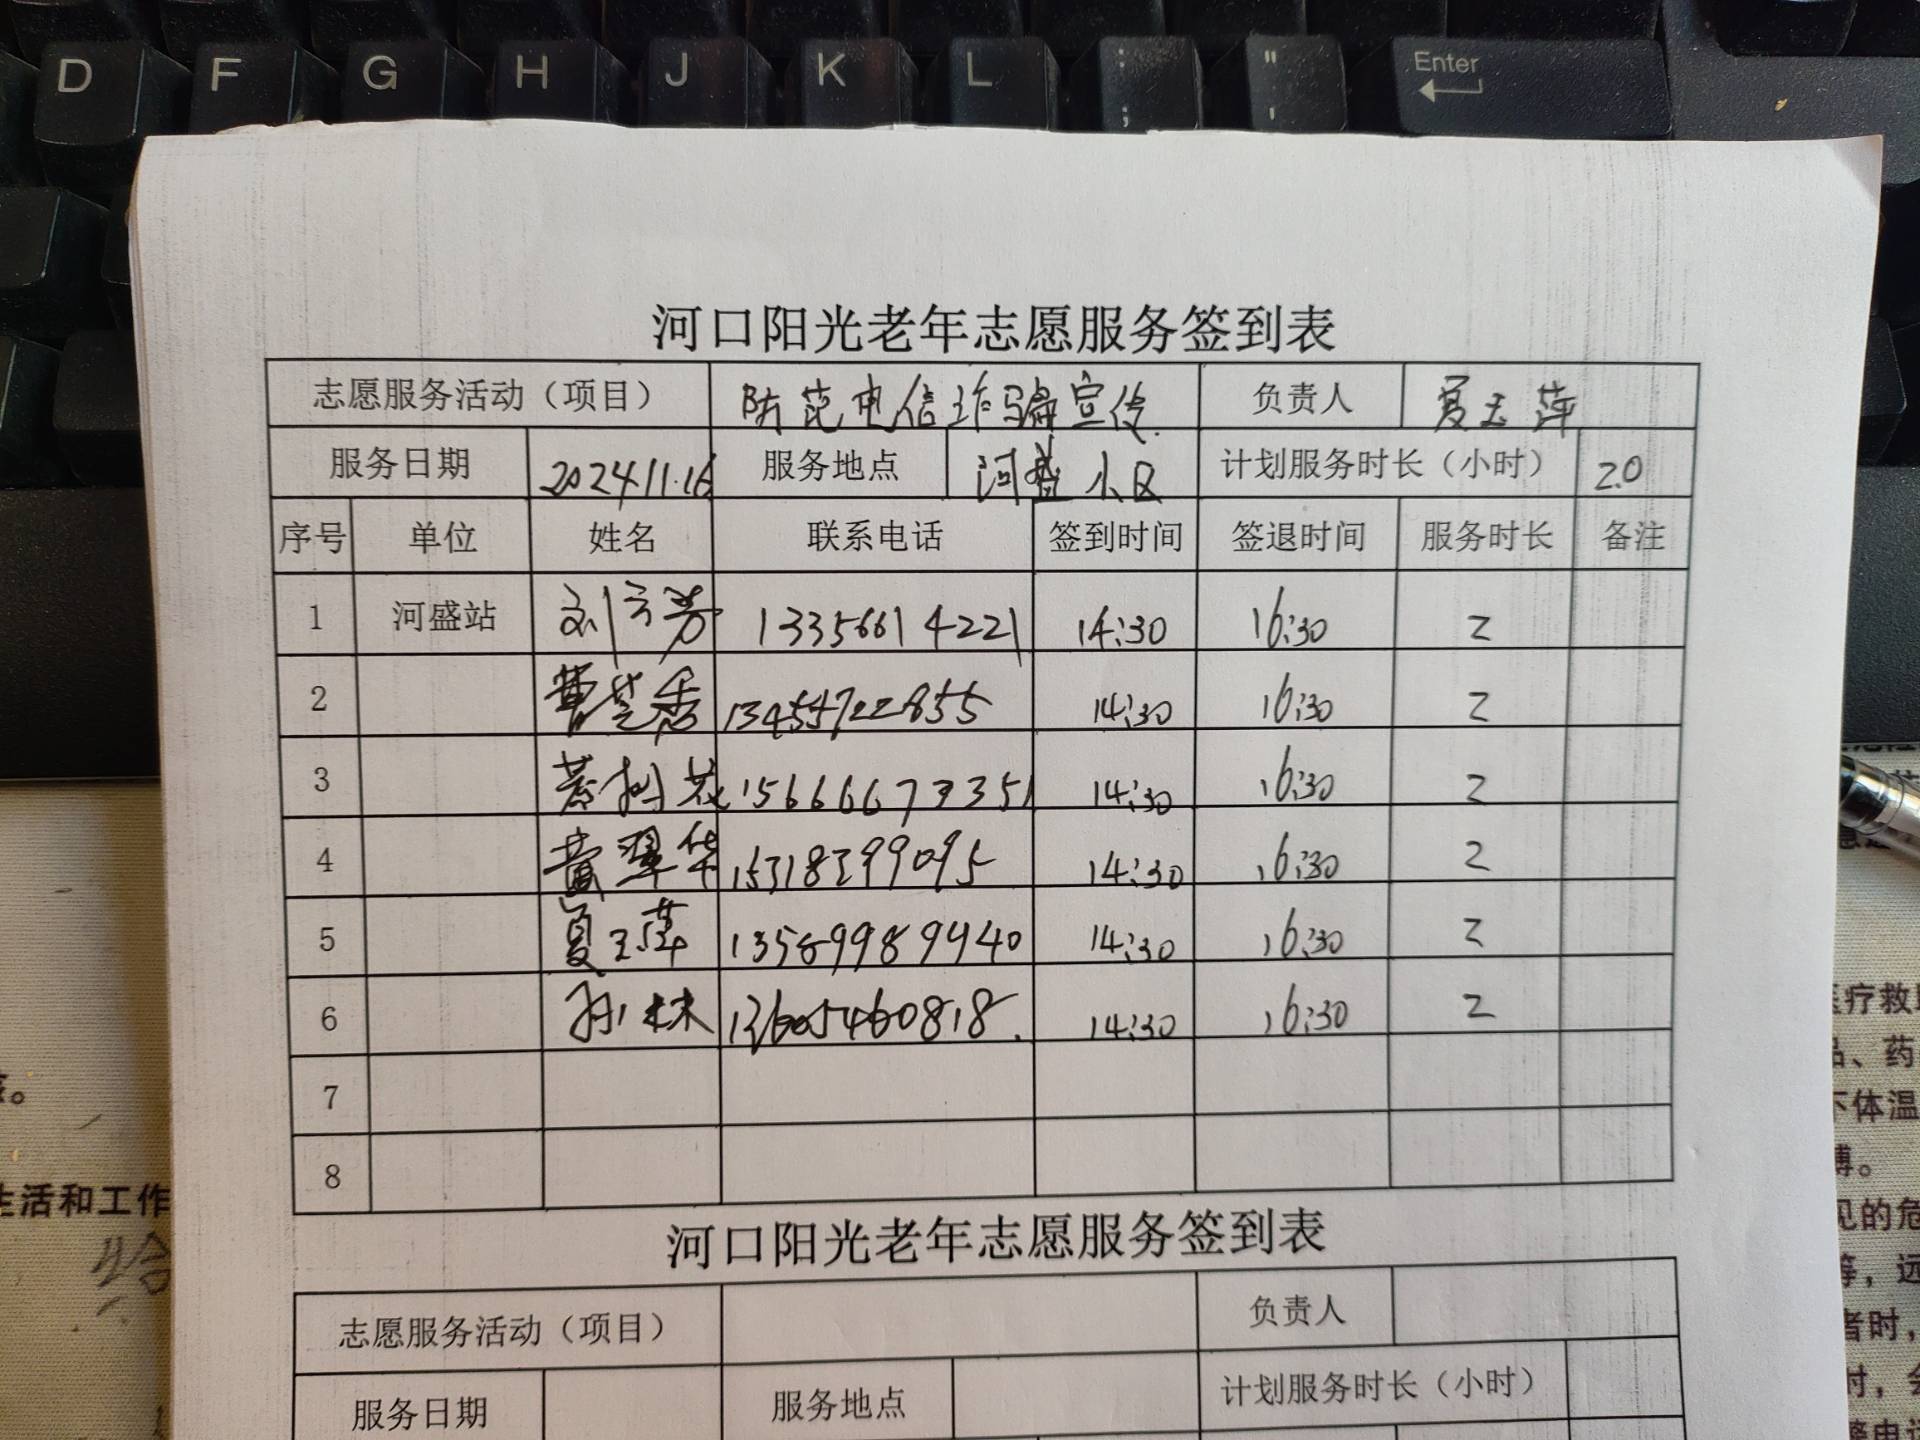 D F G H J K L : ; " ' Enter
河口阳光老年志愿服务签到表
志愿服务活动（项目） 防范电信诈骗宣传 负责人 夏玉萍
服务日期 2024.11.16 服务地点 河盛小区 计划服务时长（小时） 2.0
序号 单位 姓名 联系电话 签到时间 签退时间 服务时长 备注
1 河盛站 刘芳 13356614221 14:30 16:30 2
2 曹芝香 13455722855 14:30 16:30 2
3 15666673351 14:30 16:30 2
4 黄翠华 15318399095 14:30 16:30 2
5 夏玉萍 13589989940 14:30 16:30 2
6 孙林 13605460818. 14:30 16:30 2
7
8
河口阳光老年志愿服务签到表
志愿服务活动（项目） 负责人
服务日期 服务地点 计划服务时长（小时）
生活和工作
医疗救
品、药
下体温
博。
见的危
等，远
者时，
时，会